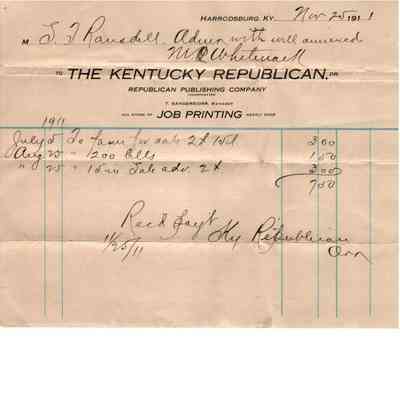 HARRODSBURG, KY. Nov 25 1911
M S. T. Ransdell Admr with will annexed
Whitenack
TO THE KENTUCKY REPUBLICAN, DR.
REPUBLICAN PUBLISHING COMPANY
INCORPORATED
T. SANDERSDORF, MANAGER
ALL KINDS OF JOB PRINTING NEATLY DONE
1911
July 5 To farm for sale 2x 3 00
Aug 25 " 200 Bills 1 50
" 25 " Sale adv. 2x 3 00
7 50
Rec'd Payt
11/25/11 Ky Republican